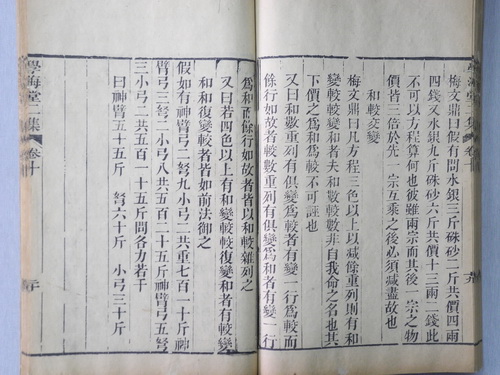 梅文鼎曰假有問水銀三斤硃砂二斤共價四兩
四錢又水銀九斤硃砂六斤共價十三兩二錢此
不可以方程算何也彼雖兩宗而其後一宗之物
價皆三倍於先一宗互乘之後必須減盡故也
和較交變
梅文鼎曰凡方程三色以上以減餘重列則有和
變較較變和者夫和數較數非自我命之名也其
下價之爲和爲較不可誣也
又曰和數重列有俱變爲較者有變一行爲較而
餘行如故者較數重列有俱變爲和者有變一行
爲和而餘行如故者皆以和較雜列之
又曰若四色以上有和變較較復變和者有較變
和和復變較者皆如前法御之
假如有神臂弓二弩九小弓二共重七百一十斤神
臂弓三弩二小弓八共五百二十五斤神臂弓五弩
三小弓二共五百一十五斤問各力若干
曰神臂五十五斤 弩六十斤 小弓三十斤
學海堂集 卷十